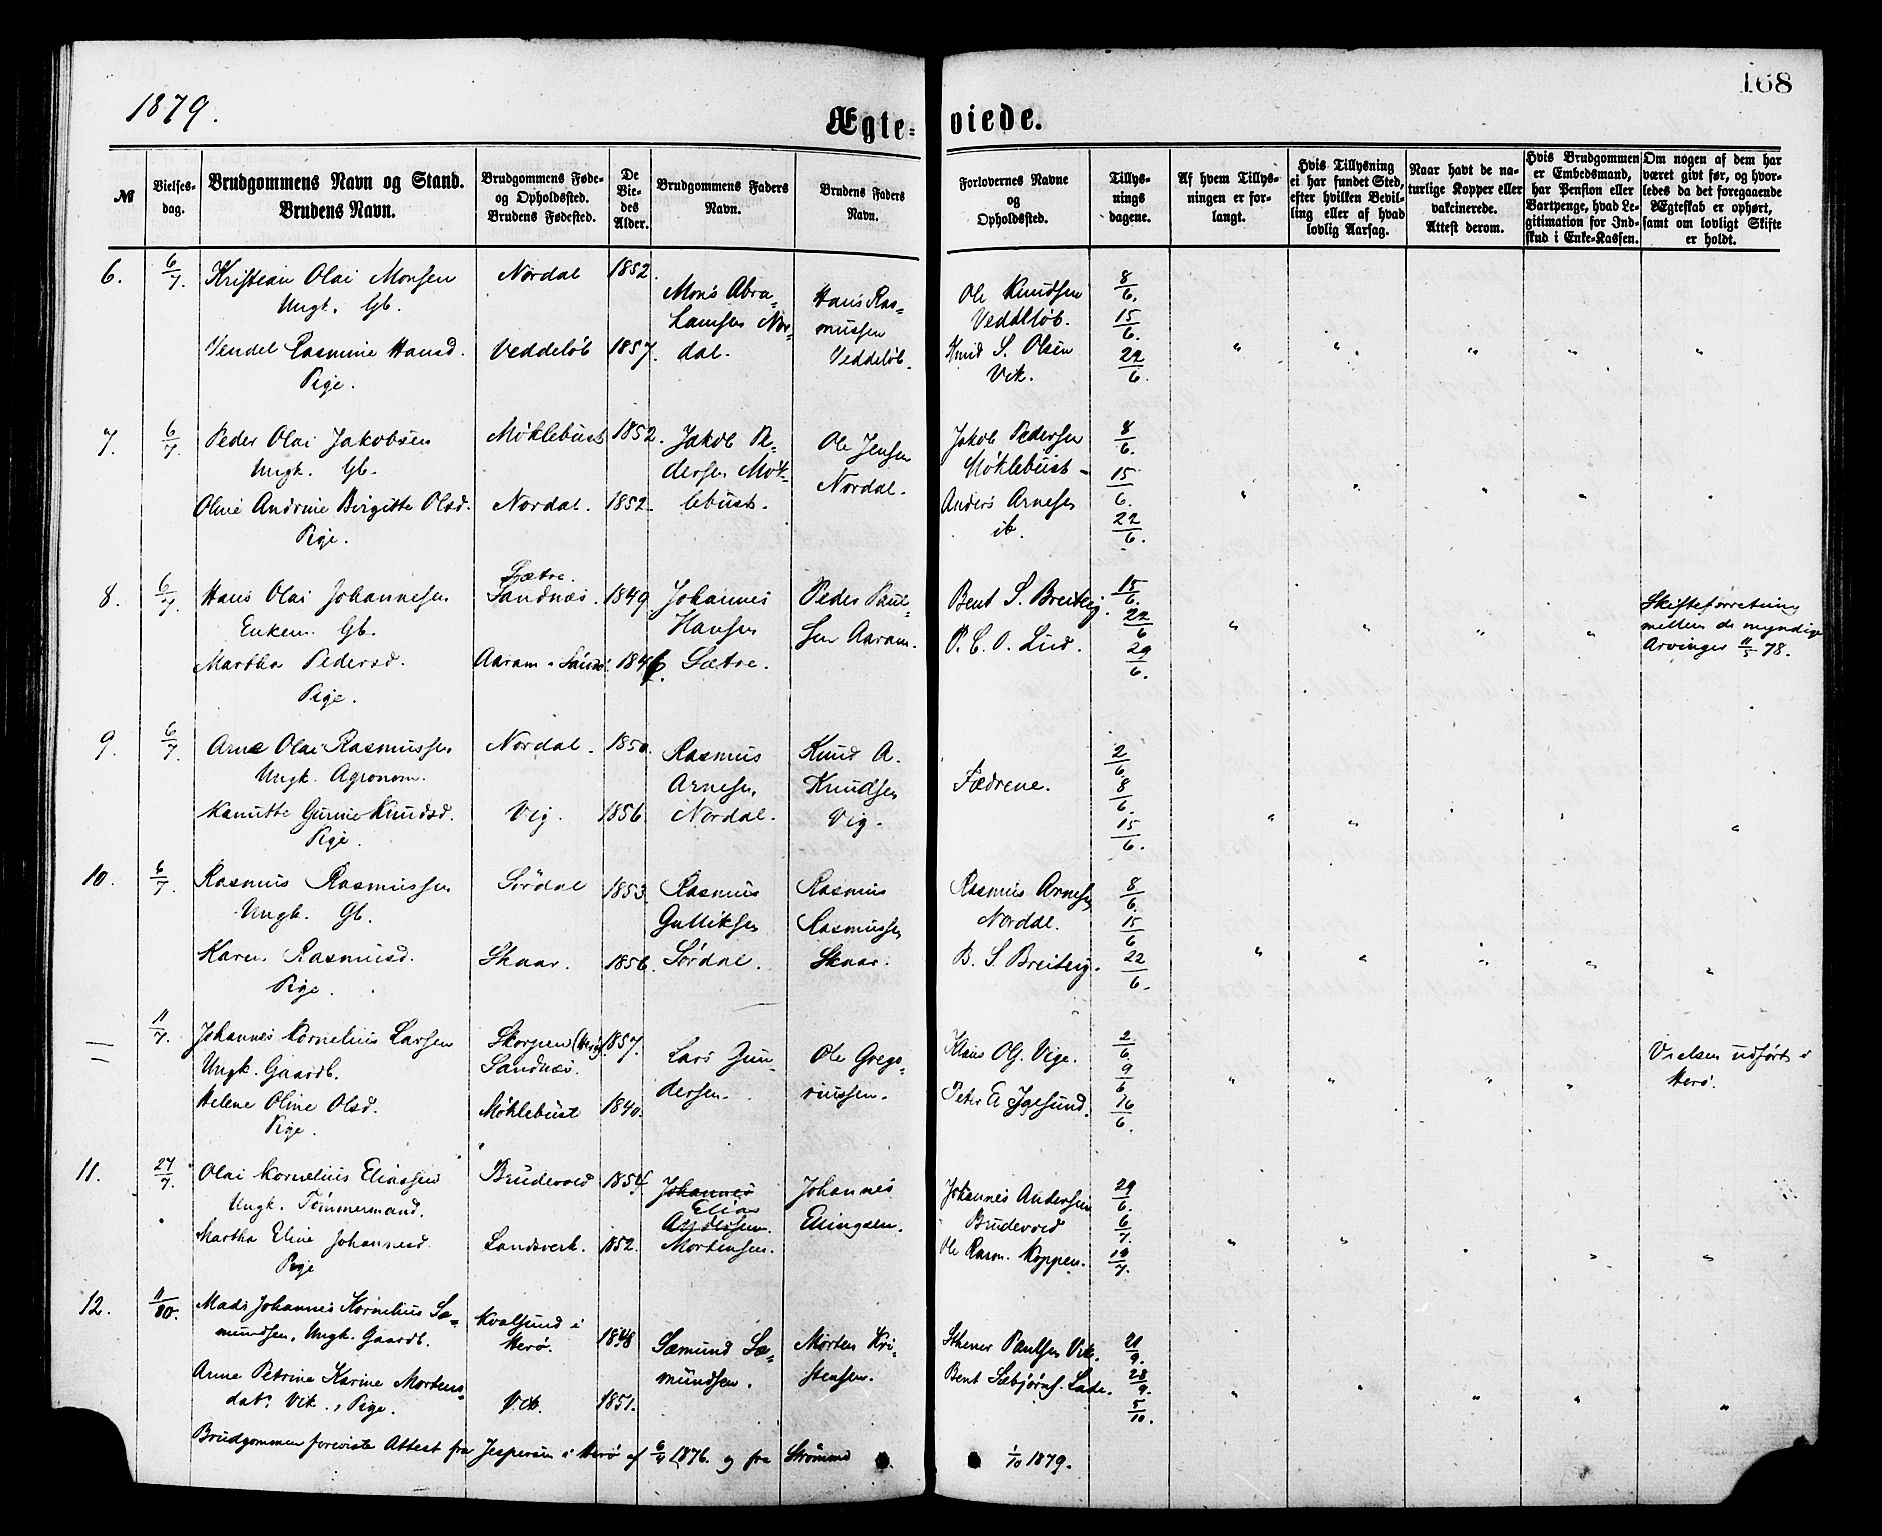 168
1879.
Ægte-
viede.
№
Vielses-
dag.
Brudgommens Navn og Stand.
Brudens Navn.
Brudgommens Føde-
og Opholdssted.
Brudens Fødested.
De
Vie-
des
Alder.
Brudgommens Faders
Navn.
Brudens Faders
Navn.
Forlovernes Navne
og
Opholdssted.
Tillys-
nings
dagene.
Af hvem Tillys-
ningen er for-
langt.
Hvis Tillysning
ei har fundet Sted,
efter hvilken Bevil-
ling eller af hvad
lovlig Aarsag.
Naar havt de na-
turlige Kopper eller
vakcinerede.
Attest derom.
Hvis Brudgommen
er Embedsmand,
har Pension eller
Vartpenge, hvad Le-
gitimation for Ind-
skud i Enke-Kassen.
Om nogen af dem har
været givt før, og hvor-
ledes da det foregaaende
Ægteskab er ophørt,
samt om lovligt Skifte
er holdt.
6.
6/7.
Kristian Olai Monsen
Ungk. Gb.
Vendel Rasmine Hansd.
Pige.
Nordal
Veddeløb
1852.
1857.
Mons Abra-
hamsen Nor-
dal.
Hans Ras-
mussen
Veddeløb.
Ole Knudsen
Veddeløb.
Knud S. Olsen
Vik.
8/6.
15/6.
22/6.
" " " " "
7.
6/7
Peder Olai Jakobsen
Ungk. Gb.
Oline Andrine Birgitte Olsd.
Pige.
Møklebust
Nordal.
1852.
1852.
Jakob Pe-
dersen Møk-
lebust.
Ole Jensen
Nordal.
Jakob Pedersen
Møklebust -
Anders Arnesen
ib.
8/6.
15/6.
22/6.
" " " " "
8.
6/7.
Hans Olai Johannesen
Enkem. Gb.
Martha Pedersd.
Pige.
Sætre.
Sandnæs.
Aaram i Sande.
1849
1846.
Johannes
Hansen
Sætre.
Peder Paul-
sen Aaram.
Bent S. Breiteig.
P. C. O. Lid.
15/6.
22/6
29/6.
" " " "
Skifteforretning
mellem de myndige
Arvinger 11/5 78.
9.
6/7
Arne Olai Rasmussen
Ungk. Agronom.
Kanutte Gurine Knudsd.
Pige.
Nordal.
Vig.
1850.
1856.
Rasmus
Arnesen
Nordal.
Knud A.
Knudsen
Vig.
Fædrene.
2/6
8/6.
15/6.
" " " " "
10.
6/7.
Rasmus Rasmussen
Ungk. Gb.
Karen Rasmusd.
Pige.
Sørdal
Skaar.
1853.
1856.
Rasmus
Gulliksen
Sørdal.
Rasmus
Rasmussen
Skaar.
Rasmus Arnesen
Nordal.
B. S. Breiteig.
8/6.
15/6
22/6.
" " " " "
—
11/7.
Johannes Kornelius Larsen
Ungk. Gaardb.
Helene Oline Olsd.
Pige.
Skorpen (Herø)
Sandnæs.
Møklebust
1857.
1840.
Lars Gun-
dersen.
Ole Grego-
riussen.
Klaus OG. Vige.
Peter A Igesund.
2/6.
9/6
16/6.
" " " "
Vielsen udført i
Herø.
11.
27/7.
Olai Kornelius Eliassen
Ungk. Tømmermand.
Martha Eline Johannesd.
Pige
Brudevold
Landsverk.
1854
1852.
Johannes
Elias
Andersen.
Mortensen.
Johannes
Ellingsen.
Johannes Andersen
Brudevold
Ole Rasm. Koppen.
29/6.
6/7.
13/7.
" " " " "
12.
11/10.
Mads Johannes Kornelius Sæ-
mundsen, Ungk. Gaardb.
Anne Petrine Karine Mortens-
dat. Vik., Pige.
Kvalsund i
Herø.
Vik.
1848
1851.
Sæmund Sæ-
mundsen.
Morten Kri-
stensen.
Sthener Paulsen Vik.
Bent Sæbjørns. Lade.
21/9.
28/9.
5/10.
" " " " "
Brudgommen foreviste Attest fra Jespersen i Herø af 6/4 1876. og fra Strømme 1/10 1879.